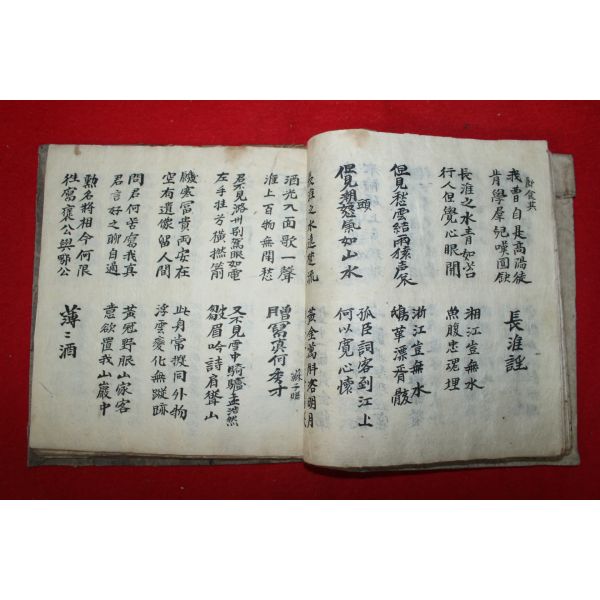 我曹自是高陽徒
肯學群兒嘆圓缺
長淮謠
長淮之水青如苔
行人但覺心眼開
湘江豈無水
魚腹忠魂埋
但見愁雲結雨猿聲哀
浙江豈無水
鴟革漂胥骸
但見潮頭怒氣如山水
孤臣詞客到江上
何以寬心懷
長淮之水遶楚流
黃金萬斛浴明月
酒光入面歌一聲
淮上百物無閑愁
贈寫真何秀才
蘇子瞻
君不見潞州別駕眼如電
左手挂弓橫撚箭
又不見雪中騎驢孟浩然
皺眉吟詩肩聳山
饑寒富貴兩安在
空有遺像留人間
此身常擬同外物
浮雲變化無蹤跡
問君何苦寫我真
君言好之聊自適
黃冠野服山家容
意欲置我山巖中
勳名將相今何限
往寫褒公與鄂公
薄ミ酒